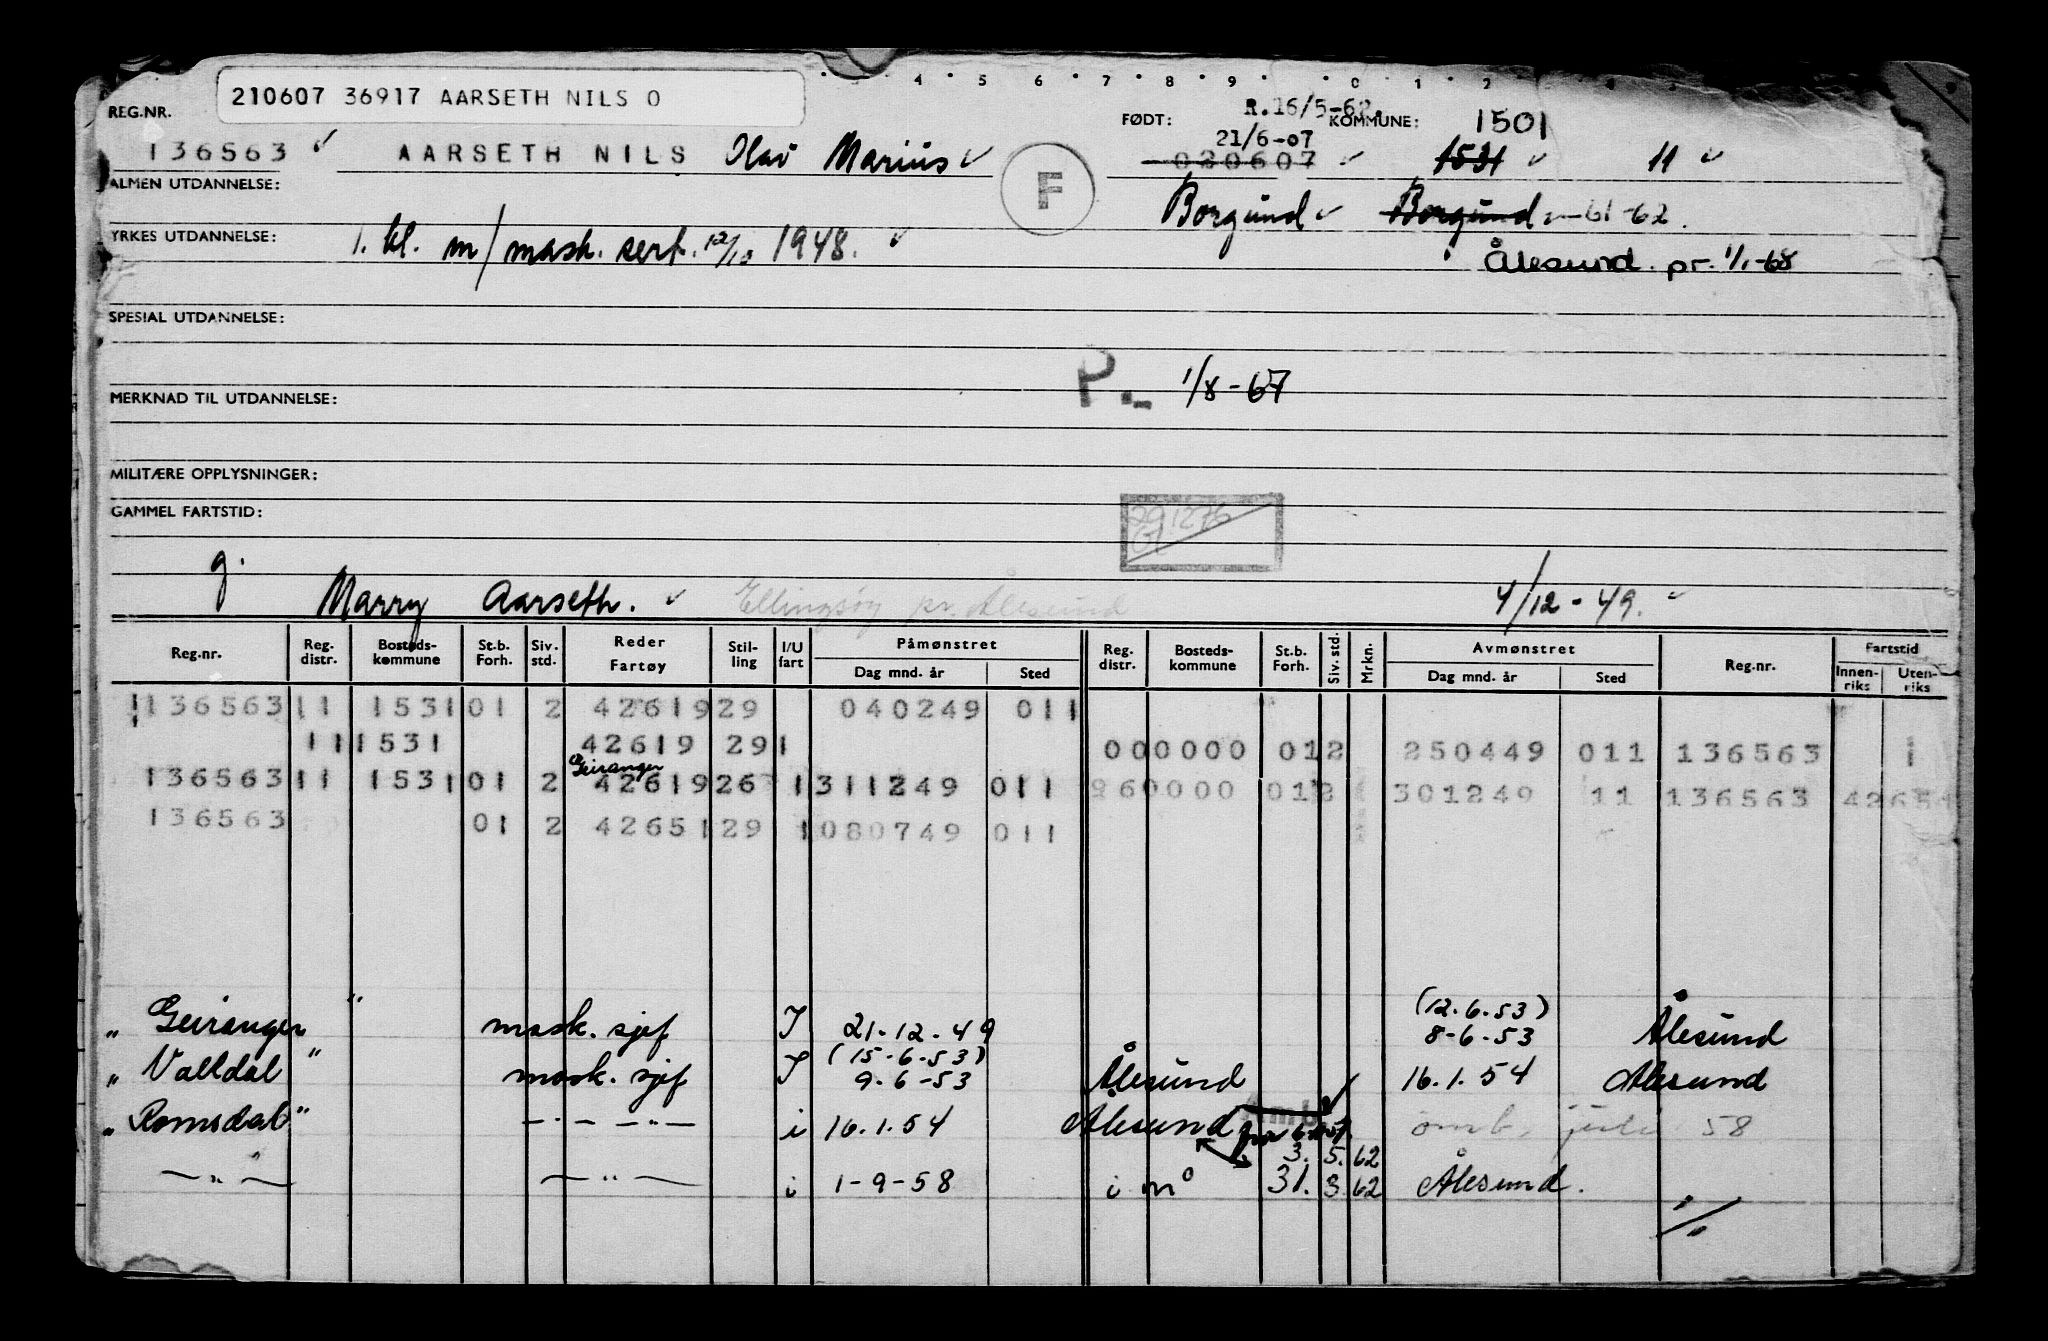 210607 36917 AARSETH NILS O
4 5 6 7 8 9 0 1 2
REG.NR. FØDT: R.16/5-62. KOMMUNE: 1501
136563 AARSETH NILS Olav Marius 21/6-07 020607 1531 11
F
ALMEN UTDANNELSE: Borgund Borgund 61-62.
YRKES UTDANNELSE: 1. kl. m/mask. sert. 12/10 1948.
Ålesund. pr. 1/1-68
SPESIAL UTDANNELSE:
P. 1/8-67
MERKNAD TIL UTDANNELSE:
MILITÆRE OPPLYSNINGER:
GAMMEL FARTSTID:
291276
g. Marry Aarseth. Ellingsøy pr. Ålesund 4/12-49.
Reg.nr. Reg. distr. Bosteds-kommune St.b. Forh. Siv. std. Reder Fartøy Stil-ling I/U fart Påmønstret Dag mnd. år Sted Reg. distr. Bosteds-kommune St.b. Forh. Siv. std. Mrkn. Avmønstret Dag mnd. år Sted Reg.nr. Fartstid Innen-riks Uten-riks
136563 11 1531 01 2 42619 29 040249 011
11 1531 42619 29 1 000000 01 2 250449 011 136563 1
Geiranger
136563 11 1531 01 2 42619 26 1 311249 011 960000 01 2 301249 11 136563 42651
136563 01 2 42651 29 1 080749 011
(12.6.53)
„ Geiranger " mask. sjef I 21-12-49 8-6-53 Ålesund
(15-6-53)
„ Valldal " mask. sjef I 9-6-53 Ålesund 16.1.54 Ålesund
„ Romsdal " —„— —„— i 16.1.54 Ålesund omb. juli 58
3. 5. 62
—„— —„— i 1-9-58 i m° 31. 3. 62 Ålesund.